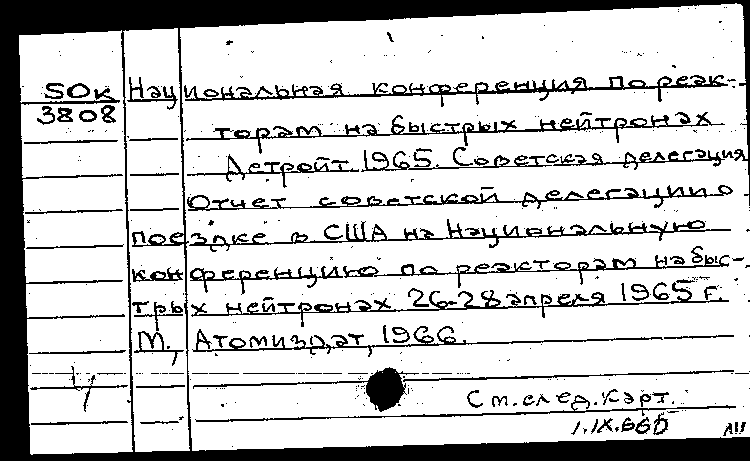 50к Национальная конференция по реак-
3808 торам на быстрых нейтронах
Детройт. 1965. Советская делегация
Отчет советской делегации о
поездке в США на Национальную
конференцию по реакторам на быс-
трых нейтронах 26-28 апреля 1965 г.
М., Атомиздат, 1966.
См. след. карт.
1.IX.66